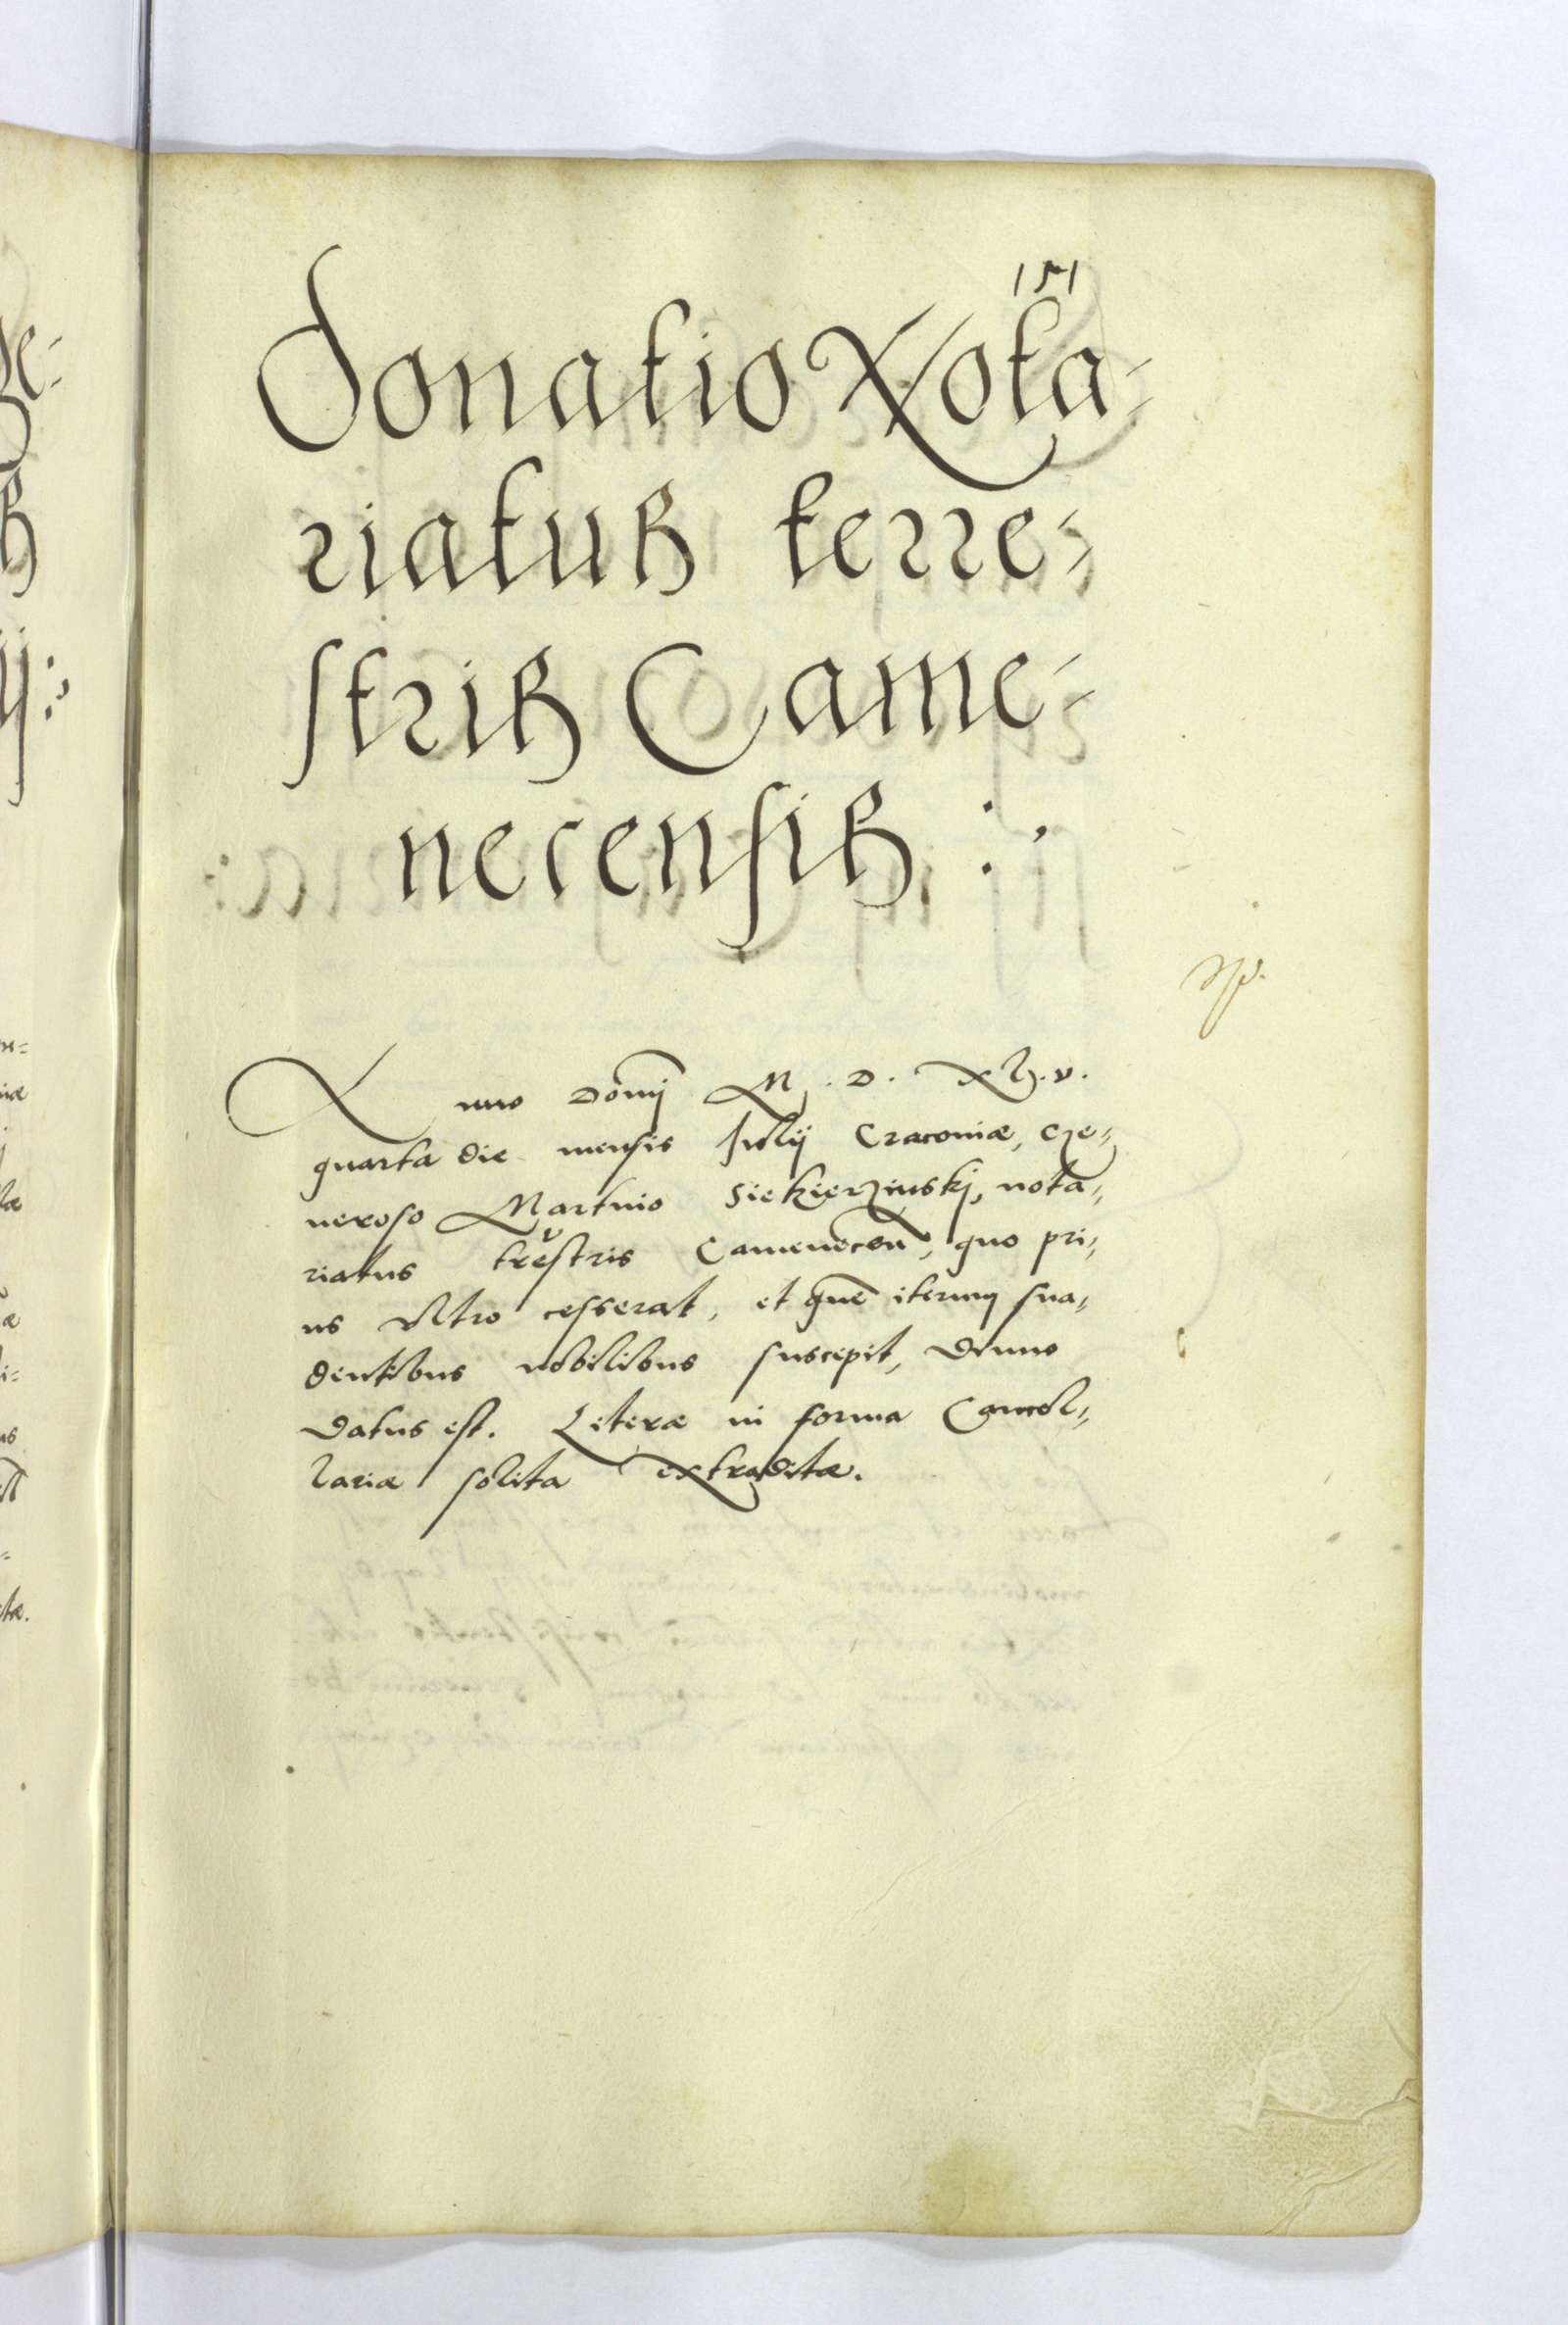 151
Donatio Nota-
riatus terre-
stris Came-
necensis :,
Anno Domi M. D. XL. V.
quarta die mensis Julij Craconiæ, Ge-
neroso Martino Siekierzinskj, nota-
riatus trestris Camenecen, quo pri-
us ultro cesserat, et quē iterum sua-
dentibus nobilibus suscepit, denuo
datus est. Literæ in forma Cancel-
lariæ solita extraditæ.